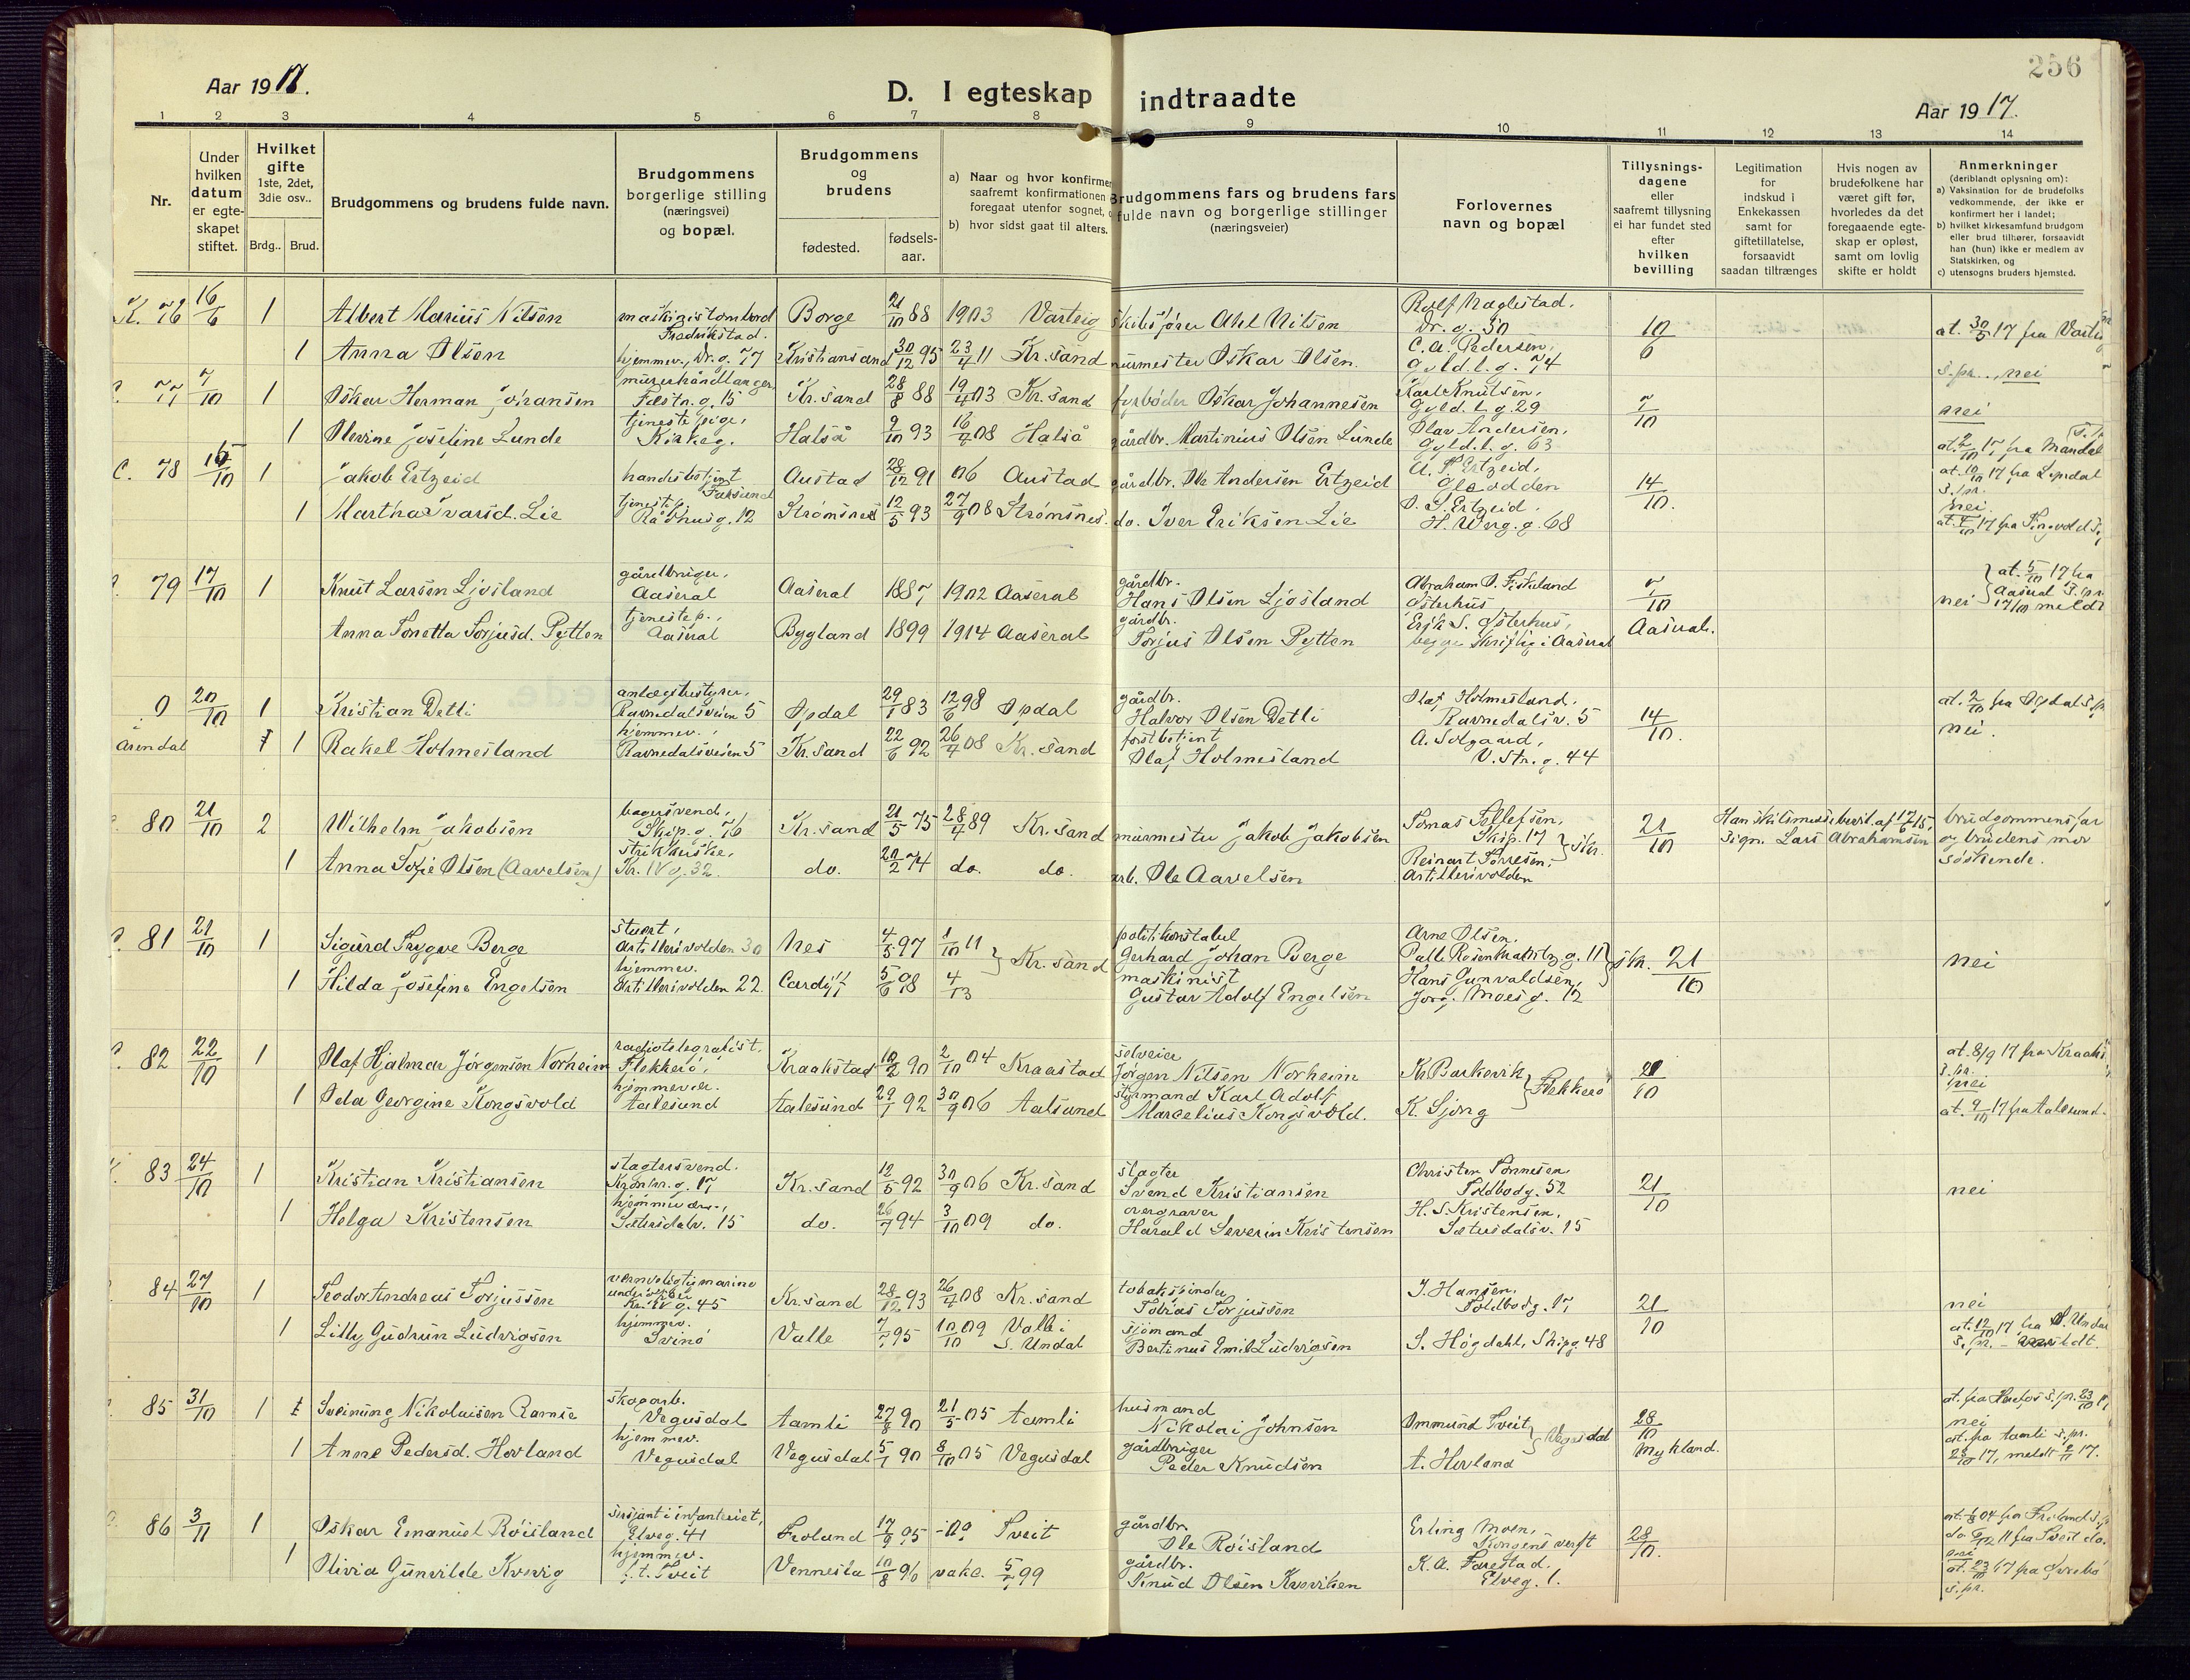 256
Aar 1917.
D. I egteskap indtraadte
Aar 1917.
1 2 3 4 5 6 7 8 9 10 11 12 13 14
Nr.
Under hvilken datum er egte-skapet stiftet.
Hvilket gifte 1ste, 2det, 3die osv..
Brdg.. Brud.
Brudgommens og brudens fulde navn.
Brudgommens borgerlige stilling (næringsvei) og bopæl.
Brudgommens og brudens
fødested. fødsels-aar.
a) Naar og hvor konfirmer
saafremt konfirmationen
foregaat utenfor sognet,
b) hvor sidst gaat til alters.
Brudgommens fars og brudens fars
fulde navn og borgerlige stillinger
(næringsveier)
Forlovernes navn og bopæl
Tillysnings-dagene eller saafremt tillysning ei har fundet sted efter hvilken bevilling
Legitimation for indskud i Enkekassen samt for giftetillatelse, forsaavidt saadan tiltrænges
Hvis nogen av brudefolkene har været gift før, hvorledes da det foregaaende egte-skap er opløst, samt om lovlig skifte er holdt
Anmerkninger
(deriblandt oplysning om):
a) Vaksination for de brudefolks vedkommende, der ikke er konfirmert her i landet;
b) hvilket kirkesamfund brudgom eller brud tilhører, forsaavidt han (hun) ikke er medlem av Statskirken, og
c) utensogns bruders hjemsted.
K. 76 16/6 1 Albert Marius Nilsen maskinist ombord Fredrikstad. Borge 21/10 88 1903 Varteig skibsfører Ahl Nilsen
Dr. g. 30 10/6 at. 30/5 17 fra
1 Anna Olsen hjemmev., Dr. g. 77 Kristiansand 30/12 95 23/4 11 Kr.sand murmester Oskar Olsen. C. A. Pedersen, Gyld.l.g. 74
S.pr.., nei
77 7/10 1 Oskar Herman Johansen murerhåndlanger, Fæstn.g. 15 Kr.sand 28/8 88 19/4 03 Kr.sand fyrbøder Oskar Johannesen Karl Knutsen, Gyld.l.g. 29 7/10 nei
1 Olevine Josefine Lunde tjenestepige, Kirkeg. Halså 9/10 93 16/4 08 Halså gårdbr. Martinius Olsen Lunde Olav Andersen, Gyld.l.g. 63 at. 2/10 17 fra Mandal
C. 78 16/10 1 Jakob Ertzeid handelsbetjent Farsund Austad 28/12 91 06 Austad gårdbr. Ole Andersen Ertzeid A. T. Ertzeid, Glodden 14/10. at. 10/10 17 fra Lyngdal
S.pr. nei
1 Martha Ivarsd. Lie tjenestep. Rådhusg. 12 Strømsnes 12/5 93 27/9 08 Strømsnes. do. Iver Eriksen Lie O. S. Ertzeid, H. Werg.g. 68
79 17/10 1 Knut Larsen Ljosland gårdbruger, Aaseral Aaseral 1887 1902 Aaseral gårdbr. Hans Olsen Ljosland Abraham O. Fiskeland Østerhus 7/10 Aaseral. nei at. 5/10 17 fra Aaseral S.pr. 17/10 meldt
Anna Tonetta Torjusd. Pytten tjenestep., Aaseral Bygland 1899 1914 Aaseral gårdbr. Torjus Olsen Pytten Erik S. Østerhus, begge skriftlig i Aaseral
0 20/10 1 Kristian Detli anlægsbestyrer, Ravnedalsveien 5 Opdal 29/1 83 12/6 98 Opdal gårdbr. Halvor Olsen Detli Olaf Holmesland, Ravnedalsv. 5 14/10. at. 2/10 fra Opdal S.pr.
Arendal 1 Rakel Holmesland hjemmev., Ravnedalsveien 5 Kr.sand 22/6 92 26/4 08 Kr.sand forstbetjent Olaf Holmesland A. Solgaard, V. Str.g. 44 nei.
80 21/10 2 Wilhelm Jakobsen bagersvend, Skip.g. 76 Kr.sand 21/5 75 28/4 89 Kr.sand murmester Jakob Jakobsen Tomas Tellefsen, Skip. 17 skr. 21/10 Sign. Lars Abrahamsen brudgommens far og brudens mor søskende.
1 Anna Sofie Olsen (Aavelsen) strikkerske, Kr. IV g. 32. do. 20/2 74 do. do. arb. Ole Aavelsen Reinart Tørresen, Artillerivolden
81 21/10 1 Sigurd Trygve Berge stuert, Artillerivolden 30 Nes 4/5 97 1/10 11 Kr.sand politikonstabel Gerhard Johan Berge Arne Olsen, Palle Rosenkrantz.g. 11 skr. 21/10 nei
1 Hilda Josefine Engelsen hjemmev. Artillerivolden 22. Cardiff 5/6 98 4/13 maskinist Gustav Adolf Engelsen Hans Gunvaldsen, Jørg. Moesg. 12
82 22/10 1 Olaf Hjalmar Jørgensen Norheim radiotelegrafist, Flekkerø, Kraakstad 10/2 90 2/10 04 Kraastad selveier Jørgen Nilsen Norheim Kr. Barkevik Flekkerø 21/10 at. 8/9 17 fra
S.pr. nei
1 Oda Georgine Kongsvold hjemmevær. Aalesund Aalesund 29/1 92 30/9 06 Aalsund styrmand Karl Adolf Marcelius Kongsvold. K. Ljong at. 9/10 17 fra Aalesund.
83 24/10 1 Kristian Kristiansen slagtersvend. Kronpr.g. 17 Kr.sand 12/5 92 30/9 06 Kr.sand slagter Svend Kristiansen Christen Tønnesen, Toldbodg. 52 21/10 nei
1 Helga Kristensen hjemmevær., Sætersdalsv. 15 do. 26/7 94 3/10 09 do. overgraver Harald Severin Kristensen H. S. Kristensen, Sætersdalsv. 15
84 27/10 1 Teodor Andreas Torjussen Kr. IV g. 45 Kr.sand 28/12 93 26/4 08 Kr.sand tobakspinder Tobias Torjussen J. Hansen, Toldbodg. 17, 21/10 nei
1 Lilly Gudrun Ludvigsen hjemmev. Svinø Valle 7/7 95 10/10 09 Valle i S. Undal sjømand Bertinus Emil Ludvigsen S. Høgdahl, Skipg. 48 at. 12/10 17 fra S. Undal S.pr.
85 31/10 1 Sveinung Nikolaisen Ramse skogarb. Vegusdal Aamli 27/8 90 21/5 05 Aamli husmand Nikolai Johnsen Ommund Tveit Vegusdal 28/10 Mykland. at. fra S.pr. 23/10 17
nei
1 Anne Pedersd. Hovland hjemmev. Vegusdal Vegusdal 5/1 90 8/10 05 Vegusdal gårdbruger Peder Knudsen A. Hovland at. fra Aamli S.pr. 23/10 17, meldt 2/11 17.
86 3/11 1 Oskar Emanuel Røisland sersjant i infanteriet, Elveg. 41 Froland 17/9 95 -09 Tveit gårdbr. Ole Røisland Erling Moen, Kongensverft 28/10. fra Froland S.pr.
do. fra Tveit do.
nei
1 Olivia Gunvilde Kvevig hjemmev. Tveit Vennesla 10/8 96 vake. 5/7 99 gårdbr. Knud Olsen Kveviken K. A. Farestad. Elveg. 1. at. 23/10 17 fra
S.pr.